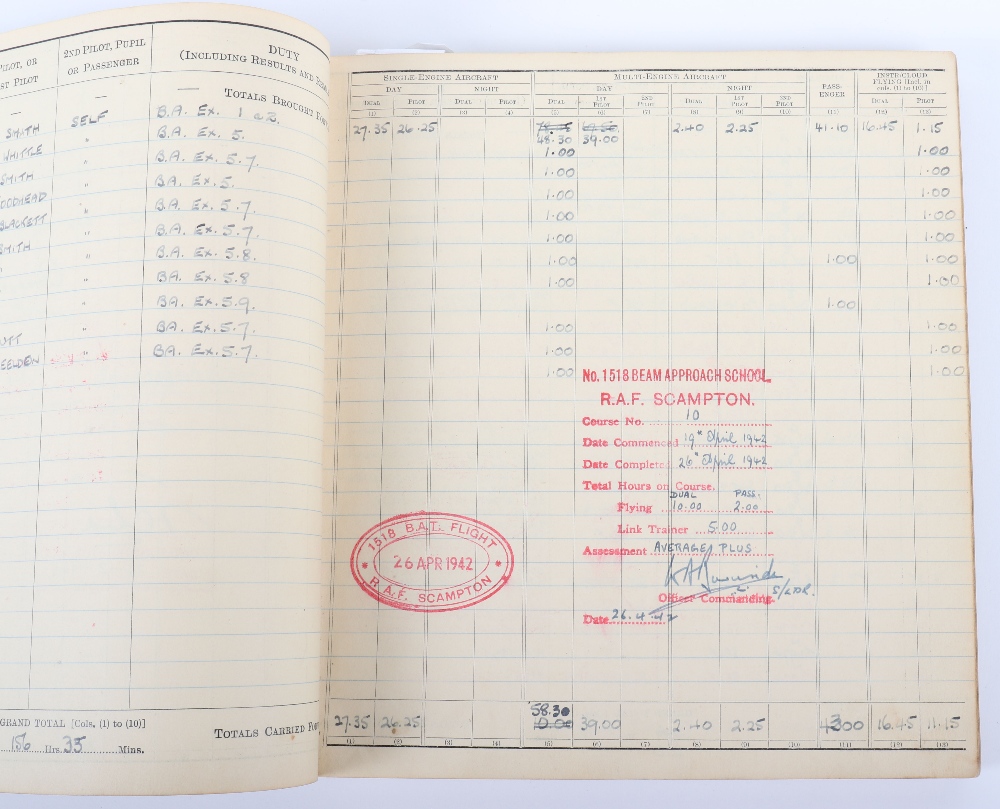 2ND PILOT, PUPIL
OR PASSENGER
DUTY
PILOT, OR
ST PILOT
(INCLUDING RESULTS AND
TOTALS BROUGHT FOR
SMITH SELF B.A. Ex. 1 & 2.
WHITTLE " B.A. Ex. 5.
SMITH " B.A. Ex. 5.7.
OODHEAD " B.A. Ex. 5.
BLACKETT " B.A. Ex. 5.7.
SMITH " B.A. Ex. 5.7.
" " B.A. Ex. 5.8.
" B.A. Ex. 5.8
" B.A. Ex. 5.9.
UTT " B.A. Ex. 5.7.
EELDEN " B.A. Ex. 5.7.
GRAND TOTAL [Cols. (1) to (10)]
156 Hrs. 35 Mins.
TOTALS CARRIED FOR
SINGLE-ENGINE AIRCRAFT MULTI-ENGINE AIRCRAFT PASS-ENGER INSTR/CLOUD FLYING [Incl. in cols. (1) to (10)]
DAY NIGHT DAY NIGHT
DUAL PILOT DUAL PILOT DUAL 1ST PILOT 2ND PILOT DUAL 1ST PILOT 2ND PILOT DUAL PILOT
(1) (2) (3) (4) (5) (6) (7) (8) (9) (10) (11) (12) (13)
27.35 26.25 2.40 2.25 41.10 16.45 1.15
48.30 39.00
1.00 1.00
1.00 1.00
1.00 1.00
1.00 1.00
1.00 1.00
1.00 1.00 1.00
1.00 1.00
1.00
1.00 1.00
1.00 1.00
1.00 1.00
No. 1518 BEAM APPROACH SCHOOL.
R.A.F. SCAMPTON.
Course No. 10
Date Commenced 19th April 1942
Date Completed 26th April 1942
Total Hours on Course.
DUAL PASS.
Flying 10.00 2.00
Link Trainer 5.00
Assessment AVERAGE PLUS
S/LDR.
Officer Commanding.
Date 26.4.42
1518 B.A.T. FLIGHT
26 APR 1942
R.A.F. SCAMPTON
58.30
27.35 26.25 10.00 39.00 2.40 2.25 4300 16.45 11.15
(1) (2) (3) (4) (5) (6) (7) (8) (9) (10) (11) (12) (13)